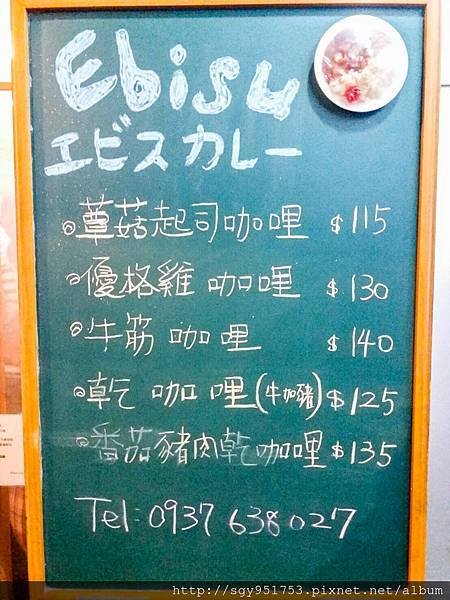 Ebisu
エビスカレー
蕈菇起司咖哩 $115
優格雞咖哩 $130
牛筋咖哩 $140
乾咖哩(牛加豬) $125
番茄豬肉乾咖哩 $135
Tel: 0937 638 027
http://sgy951753.pixnet.net/album